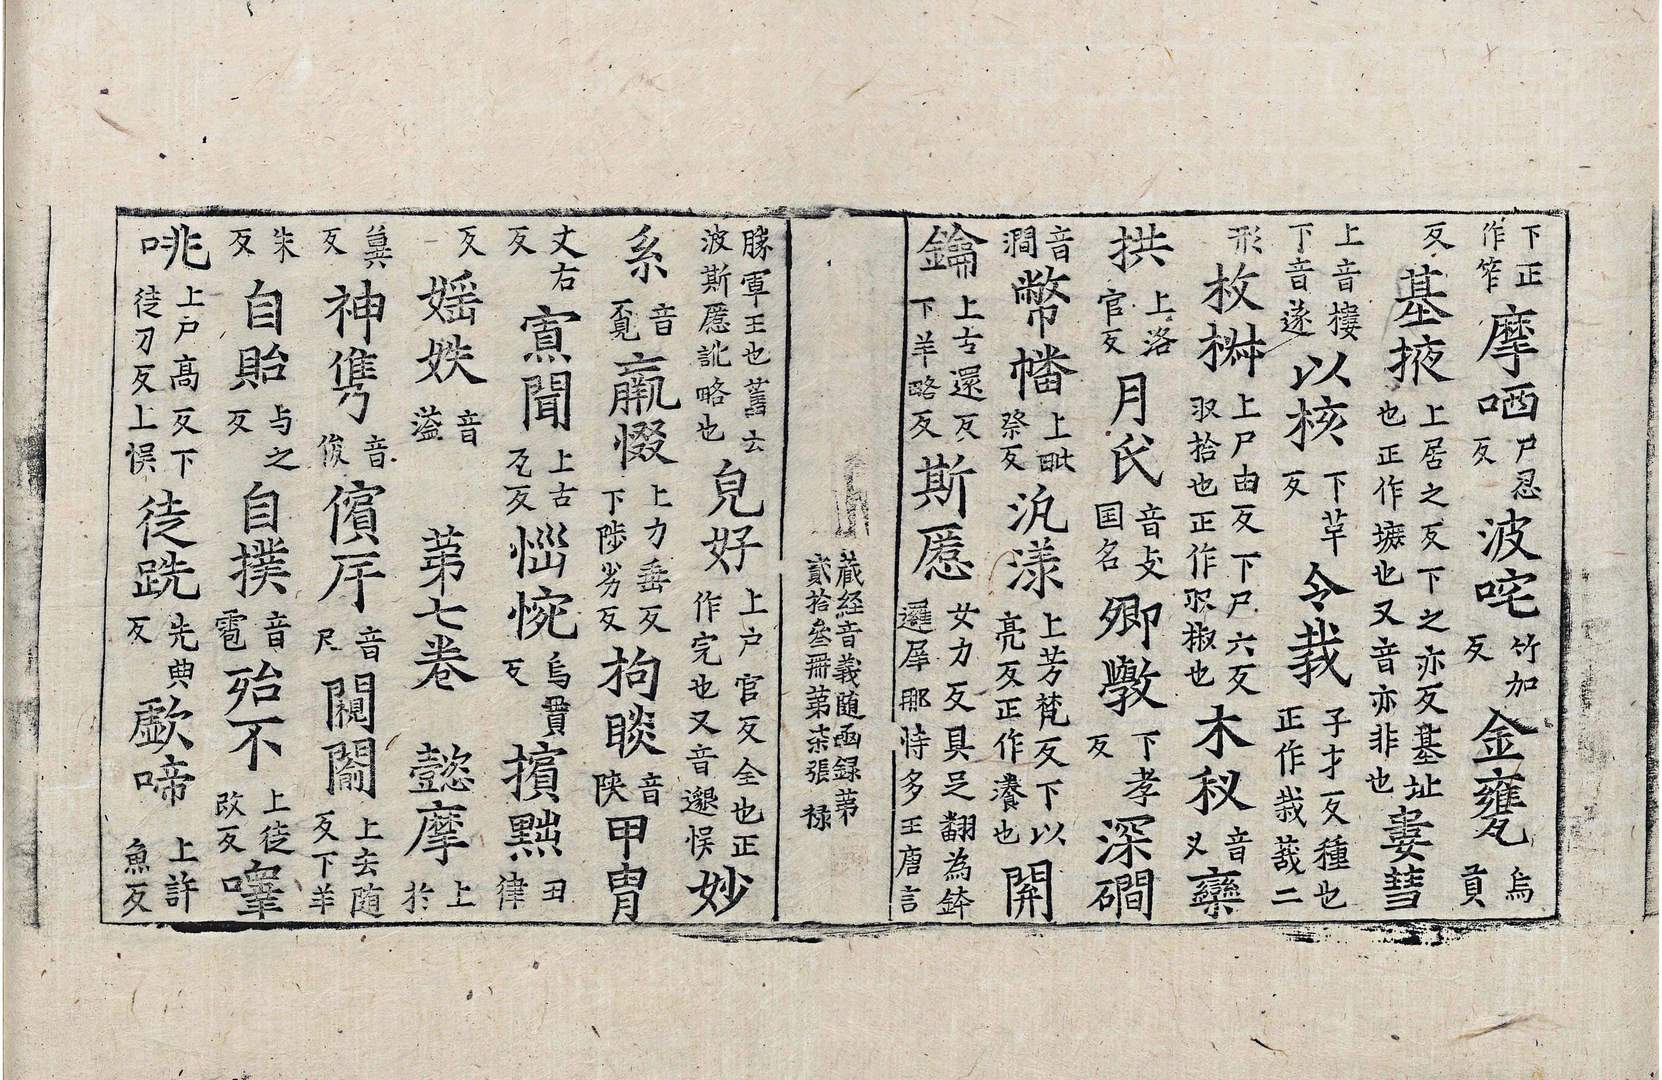 下正作笮摩哂尸忍反波咤竹加反金甕烏貢
反基掖上居之反下之亦反基址也正作墌也又音亦非也婁彗
上音摟下音遂以核下草反令栽子才反種也正作栽䓱二
形枚椒上尸由反下尸六反収拾也正作収椒也木秘音乂欒
拱上洛官反月氏音支国名卿斅下孝反深磵
音澗幣幡上毗祭反汎漾上芳梵反下以亮反正作瀁也開
鑰上古還反下羊略反斯慝女力反具足翻為鉢邏犀那恃多王唐言
藏経音義随函録苐貳拾叁冊苐柒張 禄
勝軍王也舊云波斯慝訛略也皃好上戸官反全也正作完也又音邈悮妙
糸音覔羸惙上力垂反下陟劣反拘睒音陜甲胄
丈右反寡聞上古瓦反惱惋烏貫反擯黜丑律
反婬妷音溢 苐七卷 懿摩上於
兾反神雋音俊儐斥音尺闚闟上去随反下羊
朱反自貽与之反自撲音雹殆不上徒改反嚊
咷上戸高反下徒刀反上悮徒跣先典反歔啼上許魚反